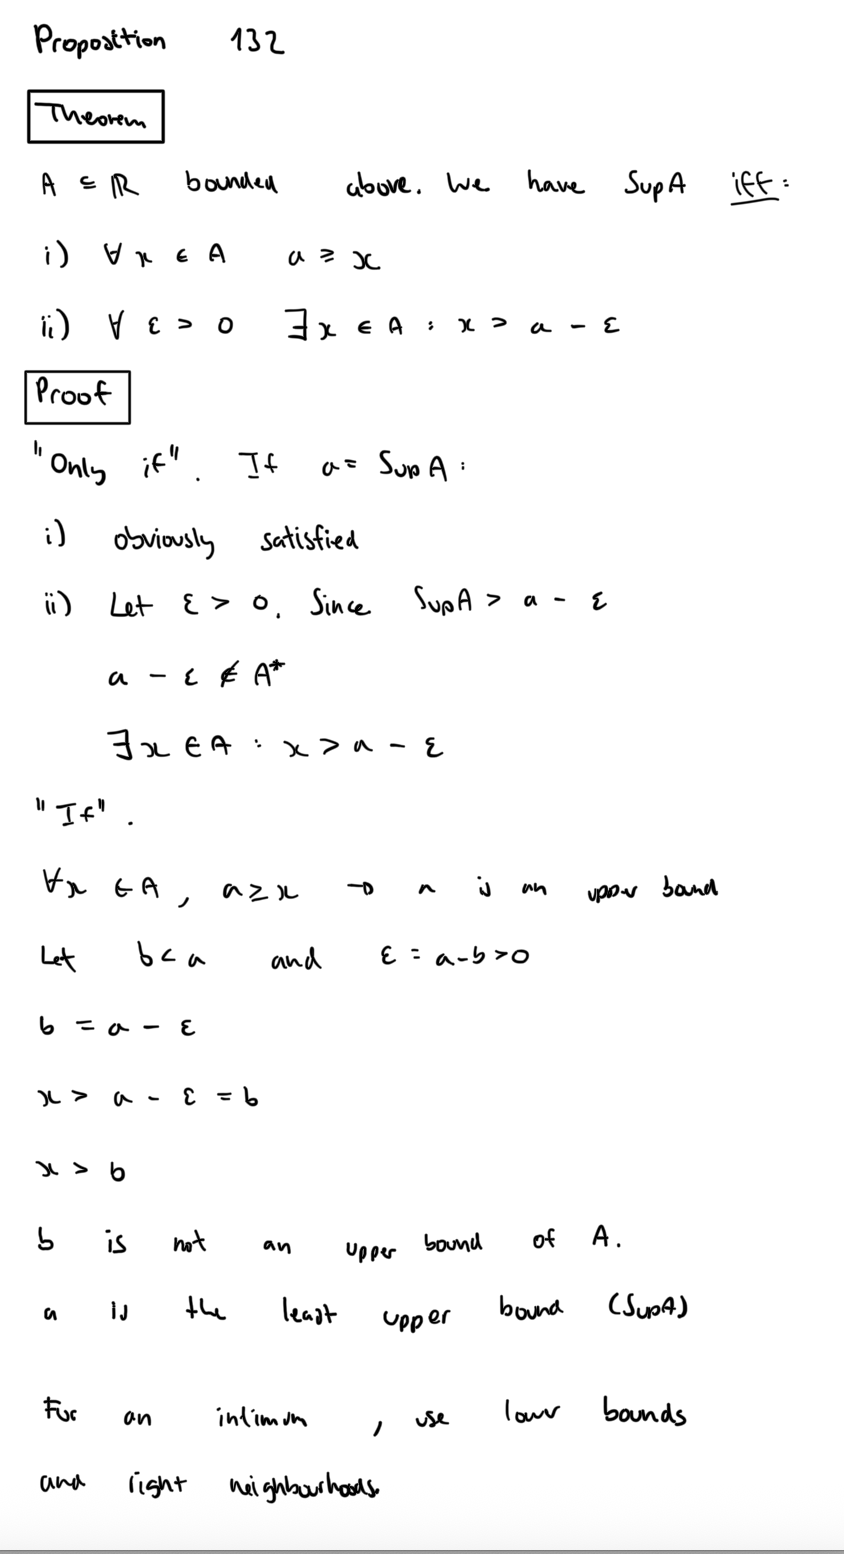 Proposition 132
Theorem
A ⊆ ℝ bounded above. We have Sup A iff:
i) ∀ x ∈ A a ≥ x
ii) ∀ ε > 0 ∃ x ∈ A : x > a - ε
Proof
"Only if". If a = Sup A :
i) obviously satisfied
ii) Let ε > 0. Since Sup A > a - ε
a - ε ∉ A*
∃ x ∈ A : x > a - ε
"If".
∀x ∈ A, a ≥ x → a is an upper bound
Let b < a and ε = a - b > 0
b = a - ε
x > a - ε = b
x > b
b is not an upper bound of A.
a is the least upper bound (Sup A)
For an infimum, use lower bounds
and right neighbourhoods.